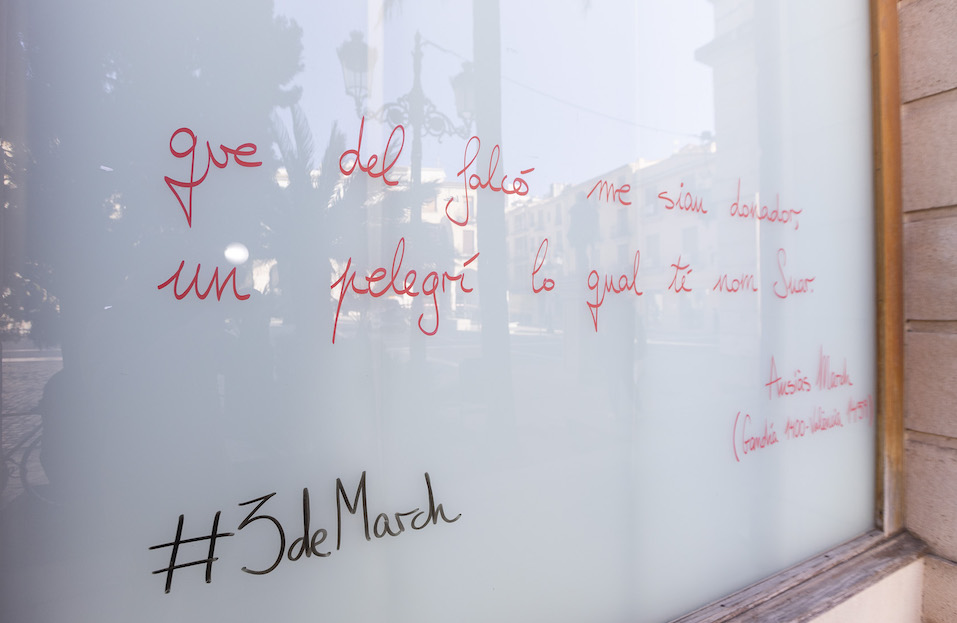 que del falcó me sian donador,
un pelegrí lo qual té nom Suar.
Ausiàs March
(Gandia 1400-València 1459)
#3deMarch